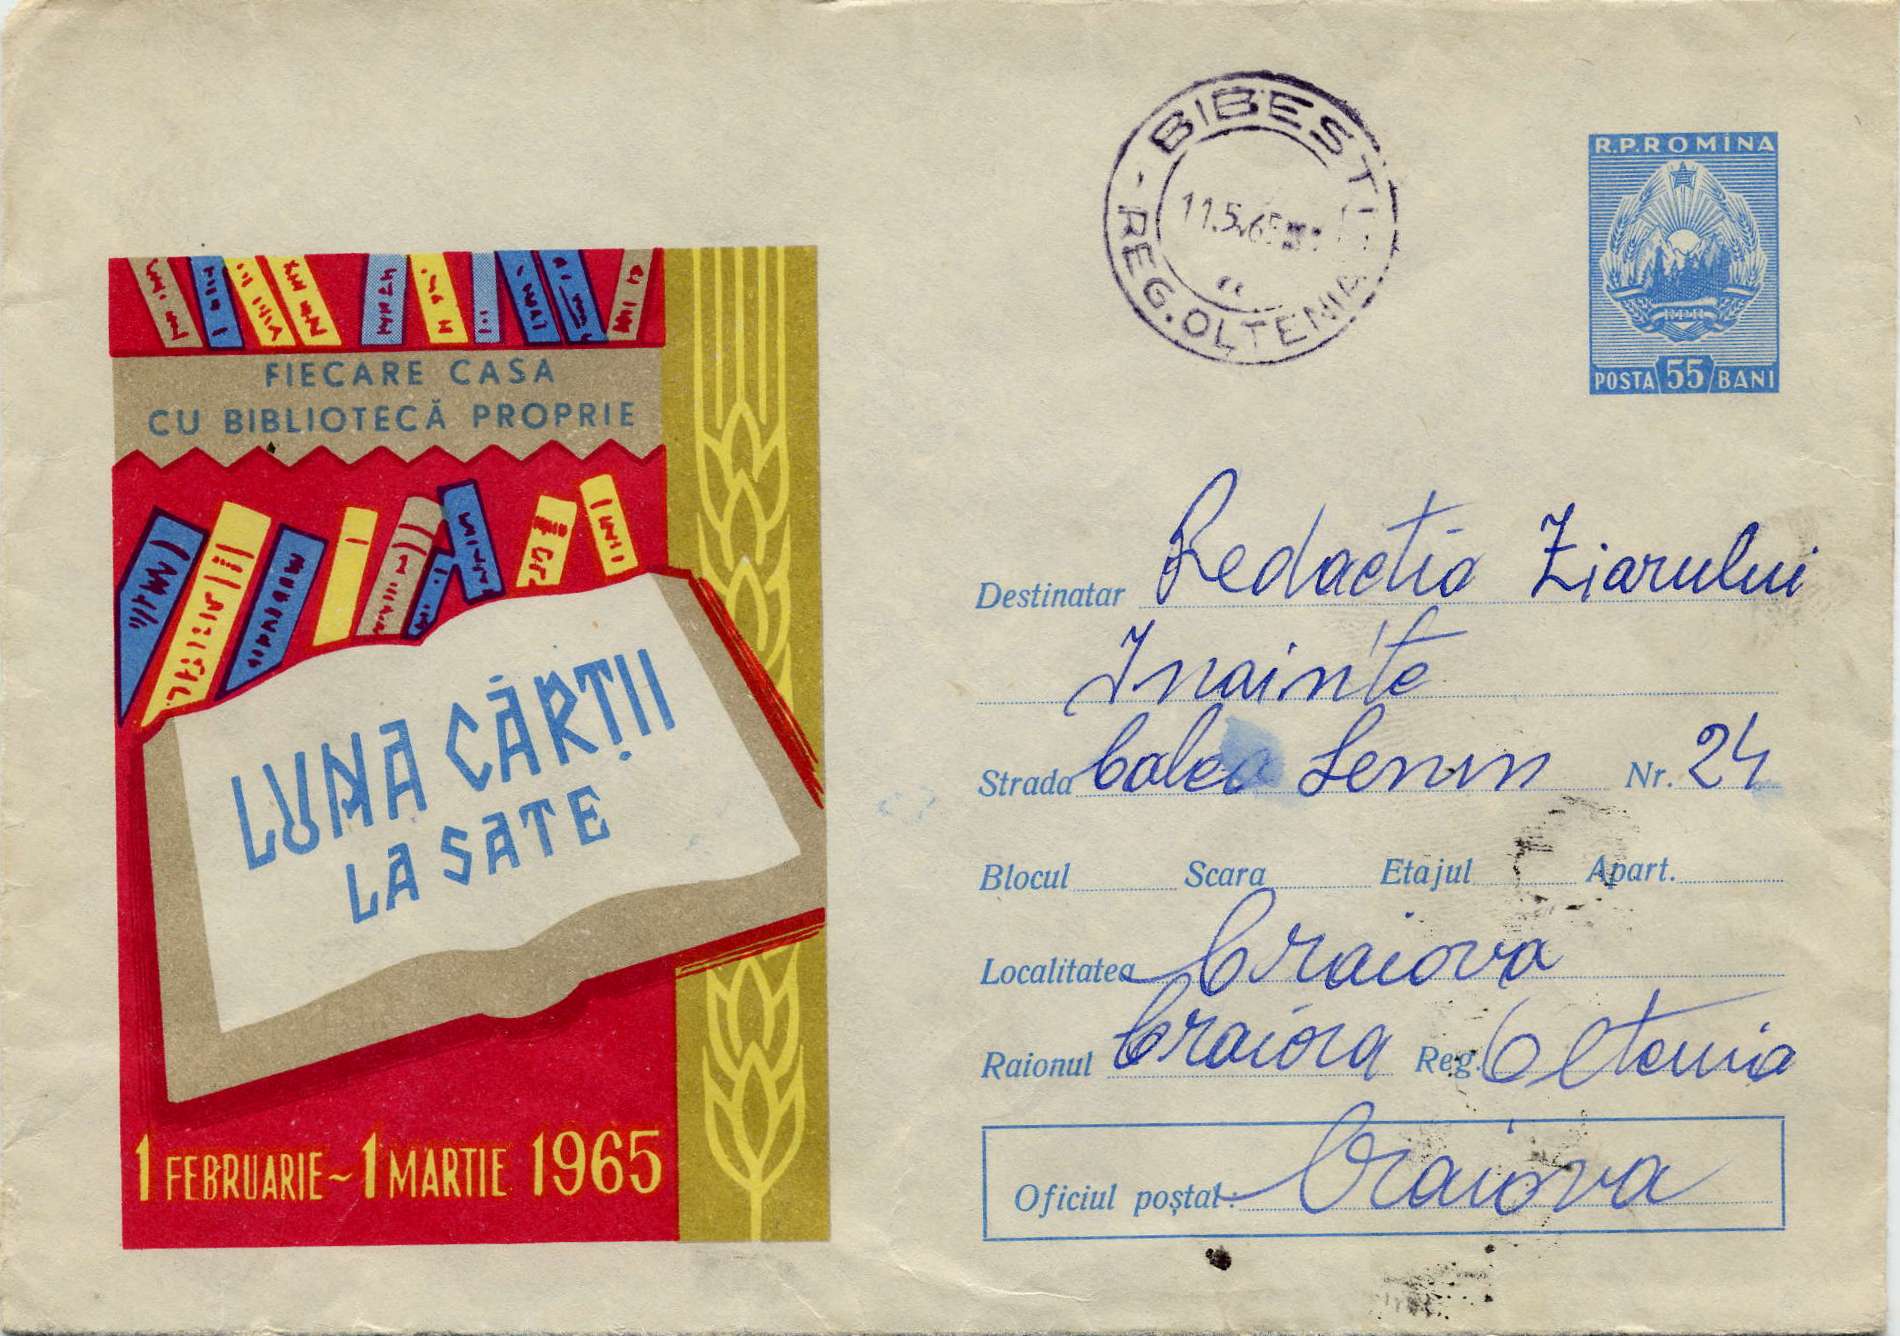 FIECARE CASA
CU BIBLIOTECĂ PROPRIE
LUNA CĂRȚII
LA SATE
1 FEBRUARIE ~ 1 MARTIE 1965
BIBESTI
11.5.65
REG. OLTENIA
R.P.ROMÎNA
R.P.R.
POSTA 55 BANI
Destinatar Redactia Ziarului
Inainte
Strada Calea Lenin Nr. 24
Blocul Scara Etajul Apart.
Localitatea Craiova
Raionul Craiova Reg. Oltenia
Oficiul poștal: Craiova